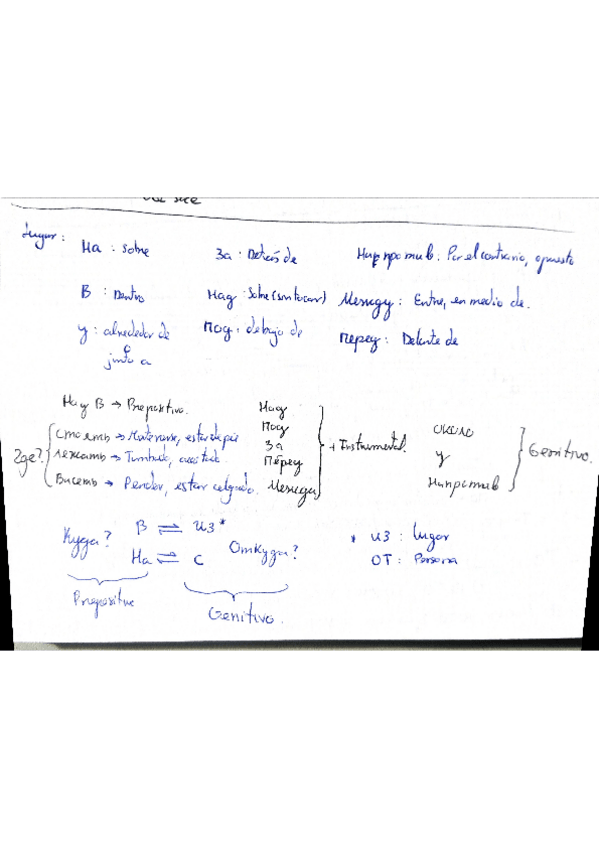 Lugar:
На : Sobre
За : Detrás de
Нирротив : Por el contrario, opuesto
В : Dentro
Над : Sobre (sin tocar)
Между : Entre, en medio de.
У : alrededor de
o
junto a
Под : debajo de
Перед : Delante de
На y В → Prepositivo.
Где?
Стоять → Mantenerse, estar de pie
Лежать → Tumbado, acostado.
Висеть → Pender, estar colgado.
Над
Под
За
Перед
Между
+ Instrumental.
около
у
Нирротив
Genitivo.
Куда?
В ⇌ из *
На ⇌ с
Откуда?
Prepositivo
Genitivo.
* из : lugar
ОТ : Persona